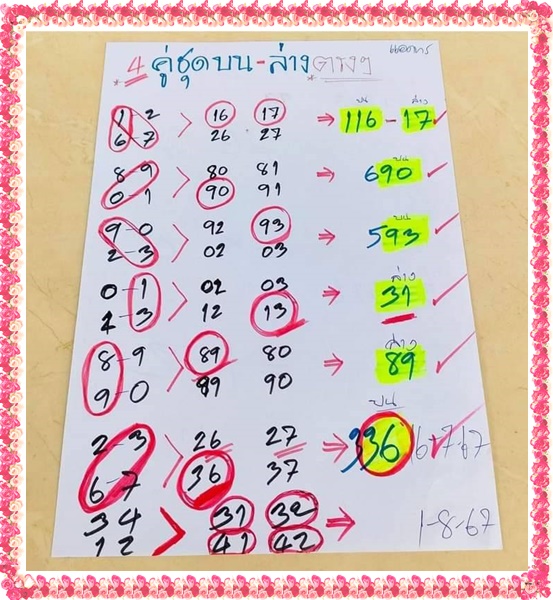 4 คู่ชุดบน-ล่าง ตรงๆ
บน ล่าง
1-2 > 16 17 ⇒ 116 - 17
6-7 26 27
บน
8-9 > 80 81 ⇒ 690
0 1 90 91
บน
9-0 > 92 93 ⇒ 593
2-3 02 03
ล่าง
0-1 > 02 03 ⇒ 31
1-3 12 13
ล่าง
8-9 > 89 80 ⇒ 89
9-0 99 90
บน
2-3 > 26 27 ⇒ 336 16-7-67
6-7 36 37
3 4 > 31 32 ⇒ 1-8-67
1 2 41 42